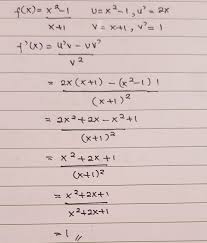 f(x) = x²-1 / x+1    u = x²-1, u' = 2x
v = x+1, v' = 1
f'(x) = u'v - uv' / v²
= 2x(x+1) - (x²-1) 1 / (x+1)²
= 2x² + 2x - x² + 1 / (x+1)²
= x² + 2x + 1 / (x+1)²
= x² + 2x + 1 / x² + 2x + 1
= 1 //